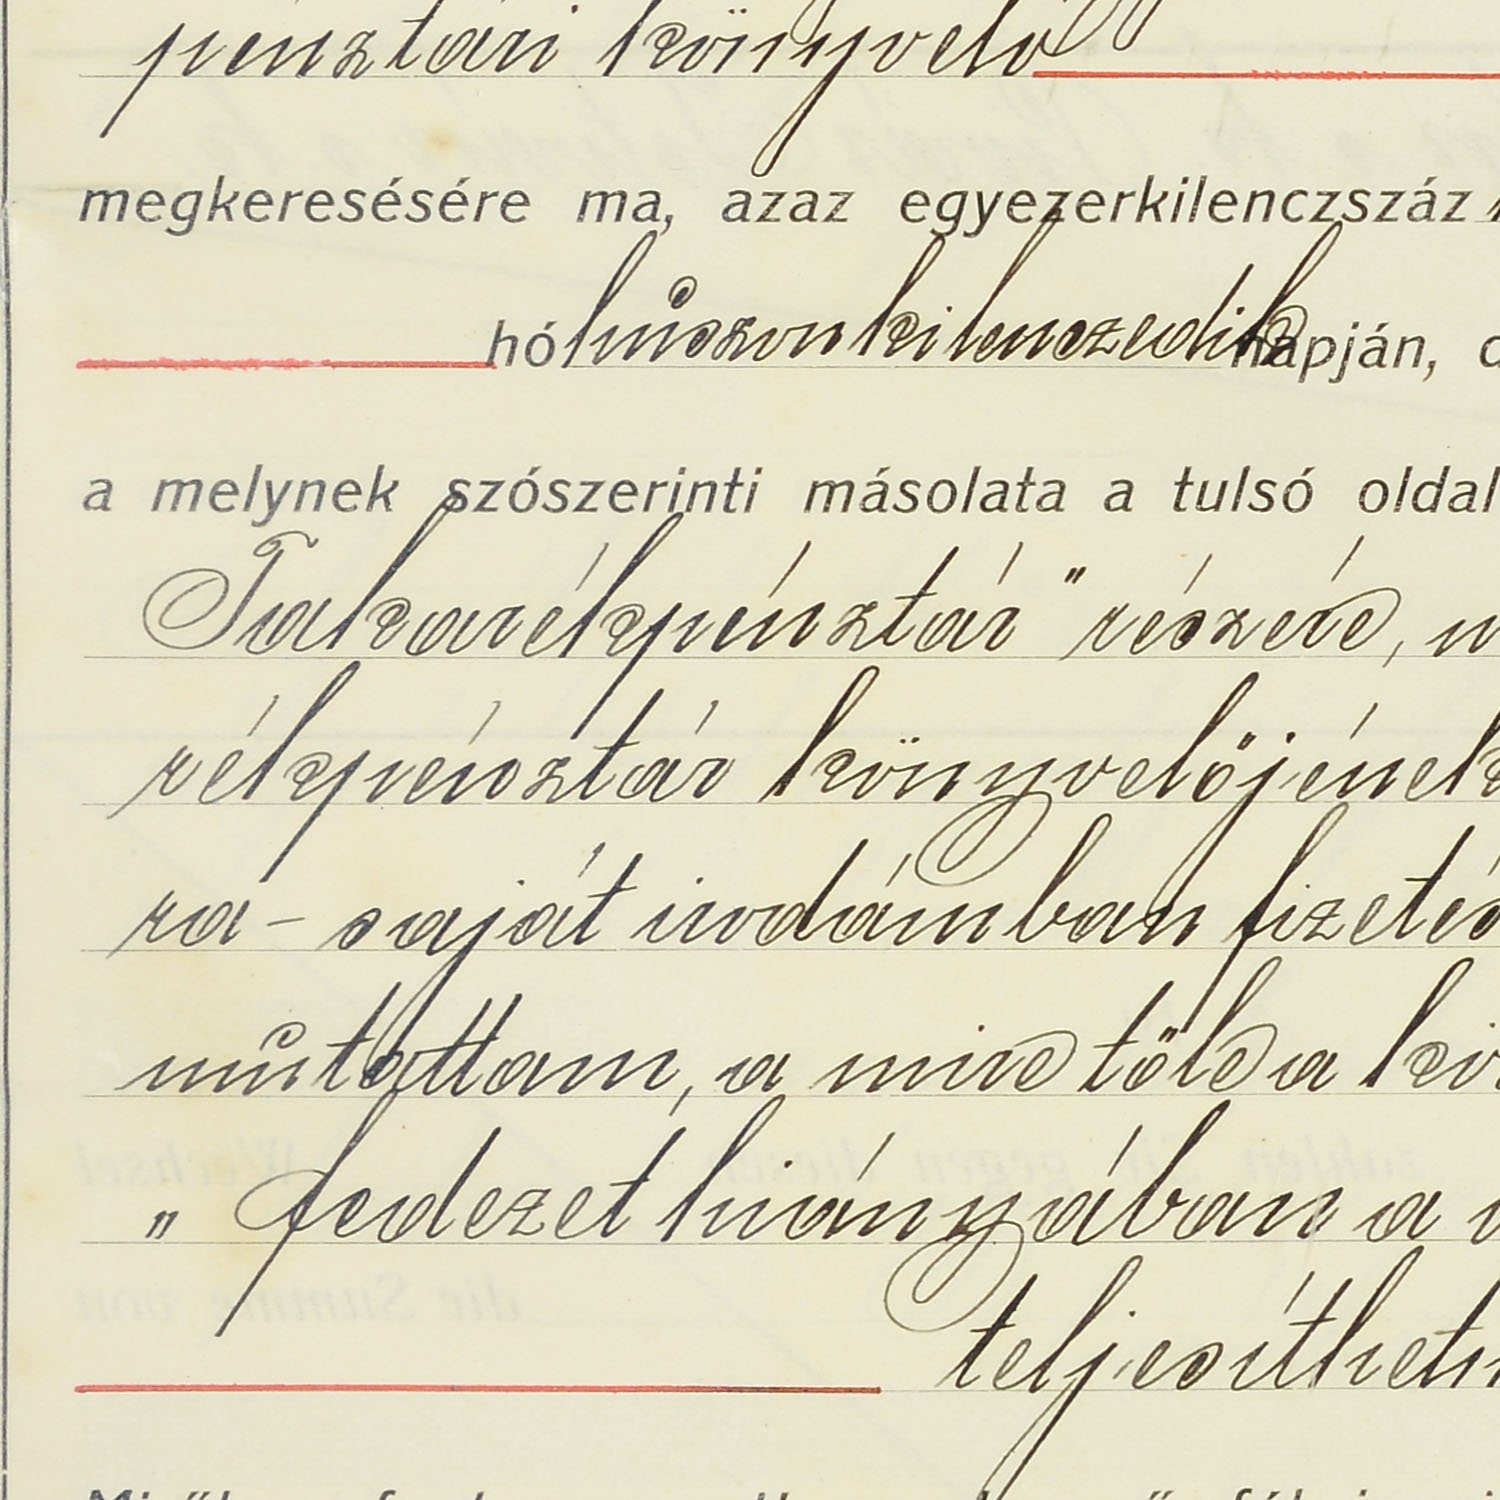 pénztári könyvelő
megkeresésére ma, azaz egyezerkilenczszáz
hó huszonkilenczedik napján,
a melynek szószerinti másolata a tulsó oldal
Takarékpénztár" részére,
rékpénztár könyvelőjének
ra - saját irodámban fizetés
mutattam, a mire tőle a
„ fedezet hiányában a
teljesíthet